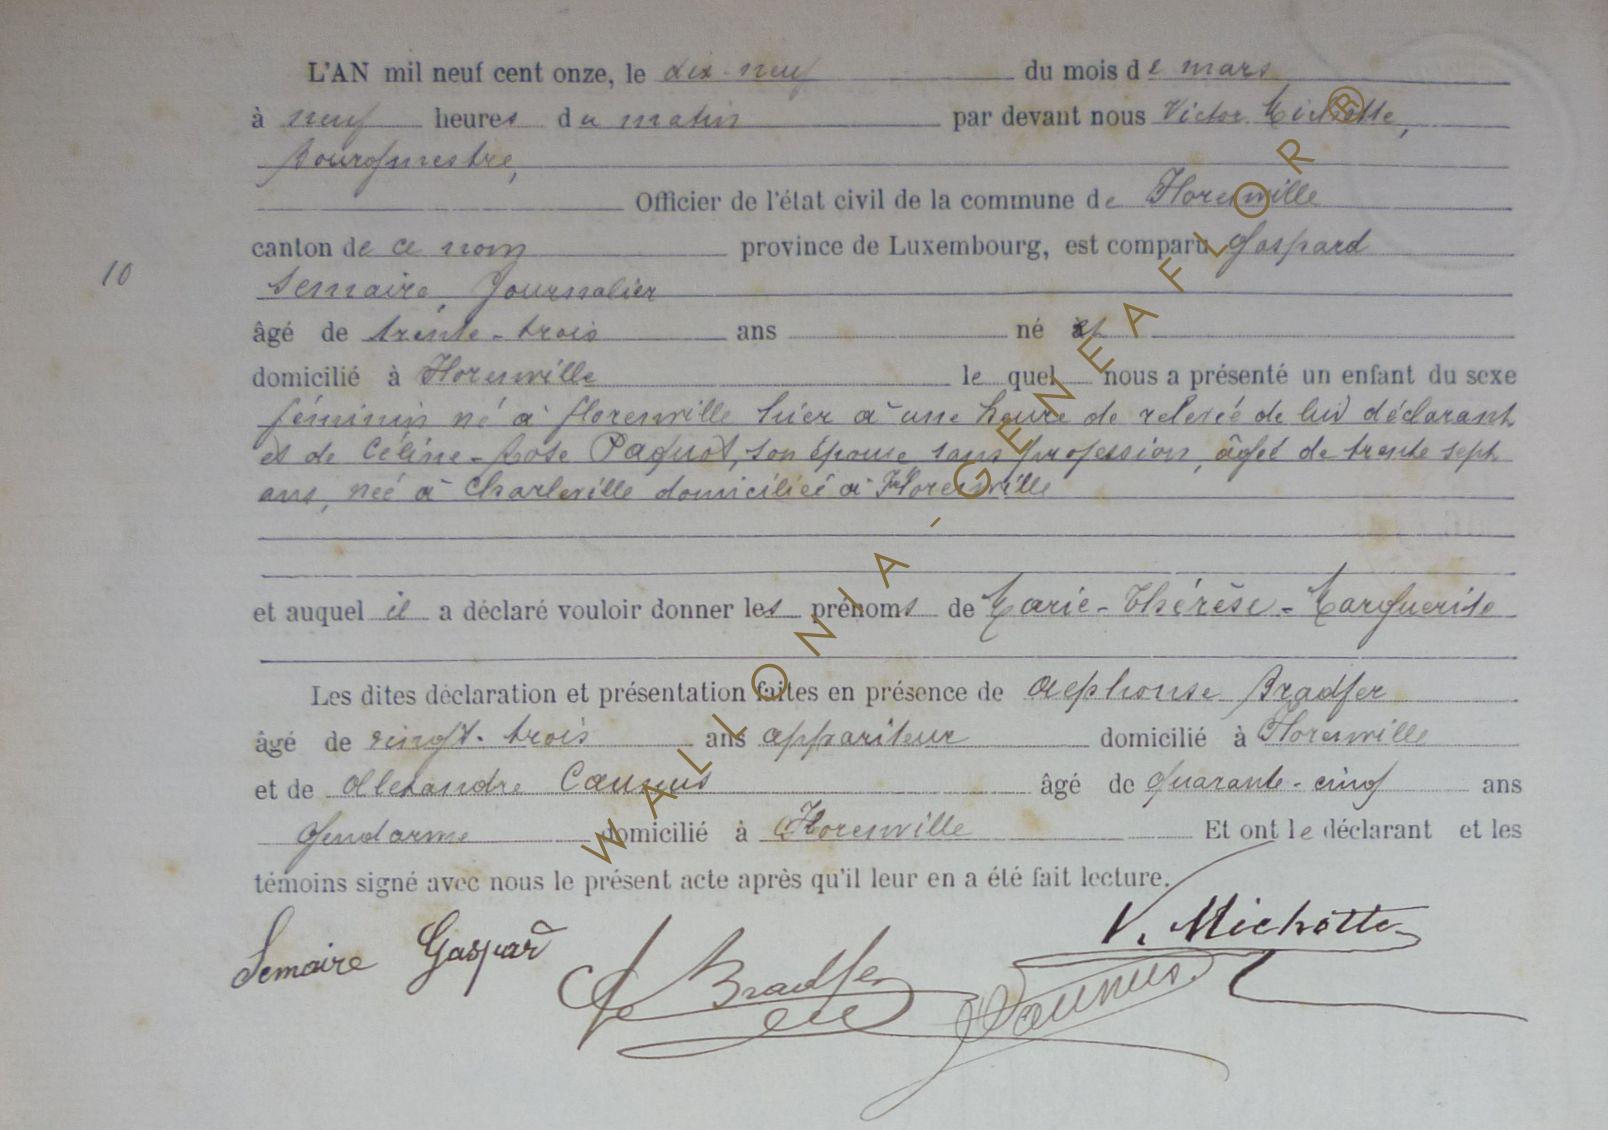 L'AN mil neuf cent onze, le dix-neuf du mois de mars
à neuf heures du matin par devant nous Victor Michotte,
Bourgmestre,
Officier de l'état civil de la commune de Florenville
canton de ce nom province de Luxembourg, est comparu Gaspard
10
Semaire, Journalier
âgé de trente-trois ans né et
domicilié à Florenville lequel nous a présenté un enfant du sexe
féminin né à florenville hier à une heure de relevée de lui déclarant
et de Céline-Rose Paquot, son épouse sans profession, âgée de trente sept
ans, née à Charleville domiciliée à Florenville
et auquel il a déclaré vouloir donner les prénoms de Marie-Thérèse-Marguerite
Les dites déclaration et présentation faites en présence de Alphonse Bradfer
âgé de vingt-trois ans appariteur domicilié à Florenville
et de Alexandre Caunus âgé de quarante-cinq ans
Gendarme domicilié à Florenville Et ont le déclarant et les
témoins signé avec nous le présent acte après qu'il leur en a été fait lecture.
V. Michotte
Semaire Gaspard
Bradfer
Caunus
WALLONIA-GENEAFLOR®